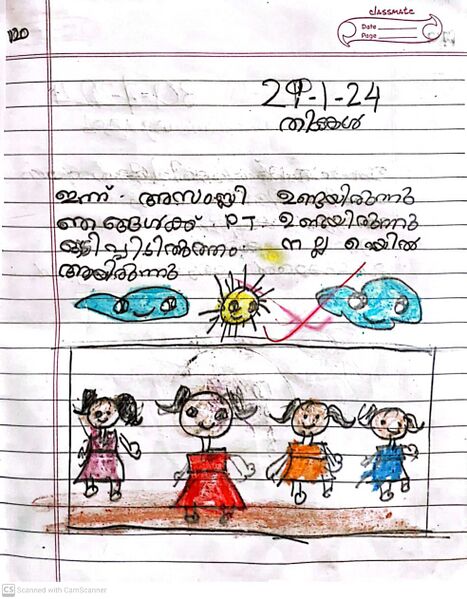 classmate
Date
Page
120
29-1-24
തിങ്കൾ
ഇന്ന് അസംബ്ലി ഉണ്ടയിരുന്നു
ഞങ്ങൾക്ക് PT ഉണ്ടയിരുന്നു
നല്ല വെയിൽ
ആയിരുന്നു
CS Scanned with CamScanner